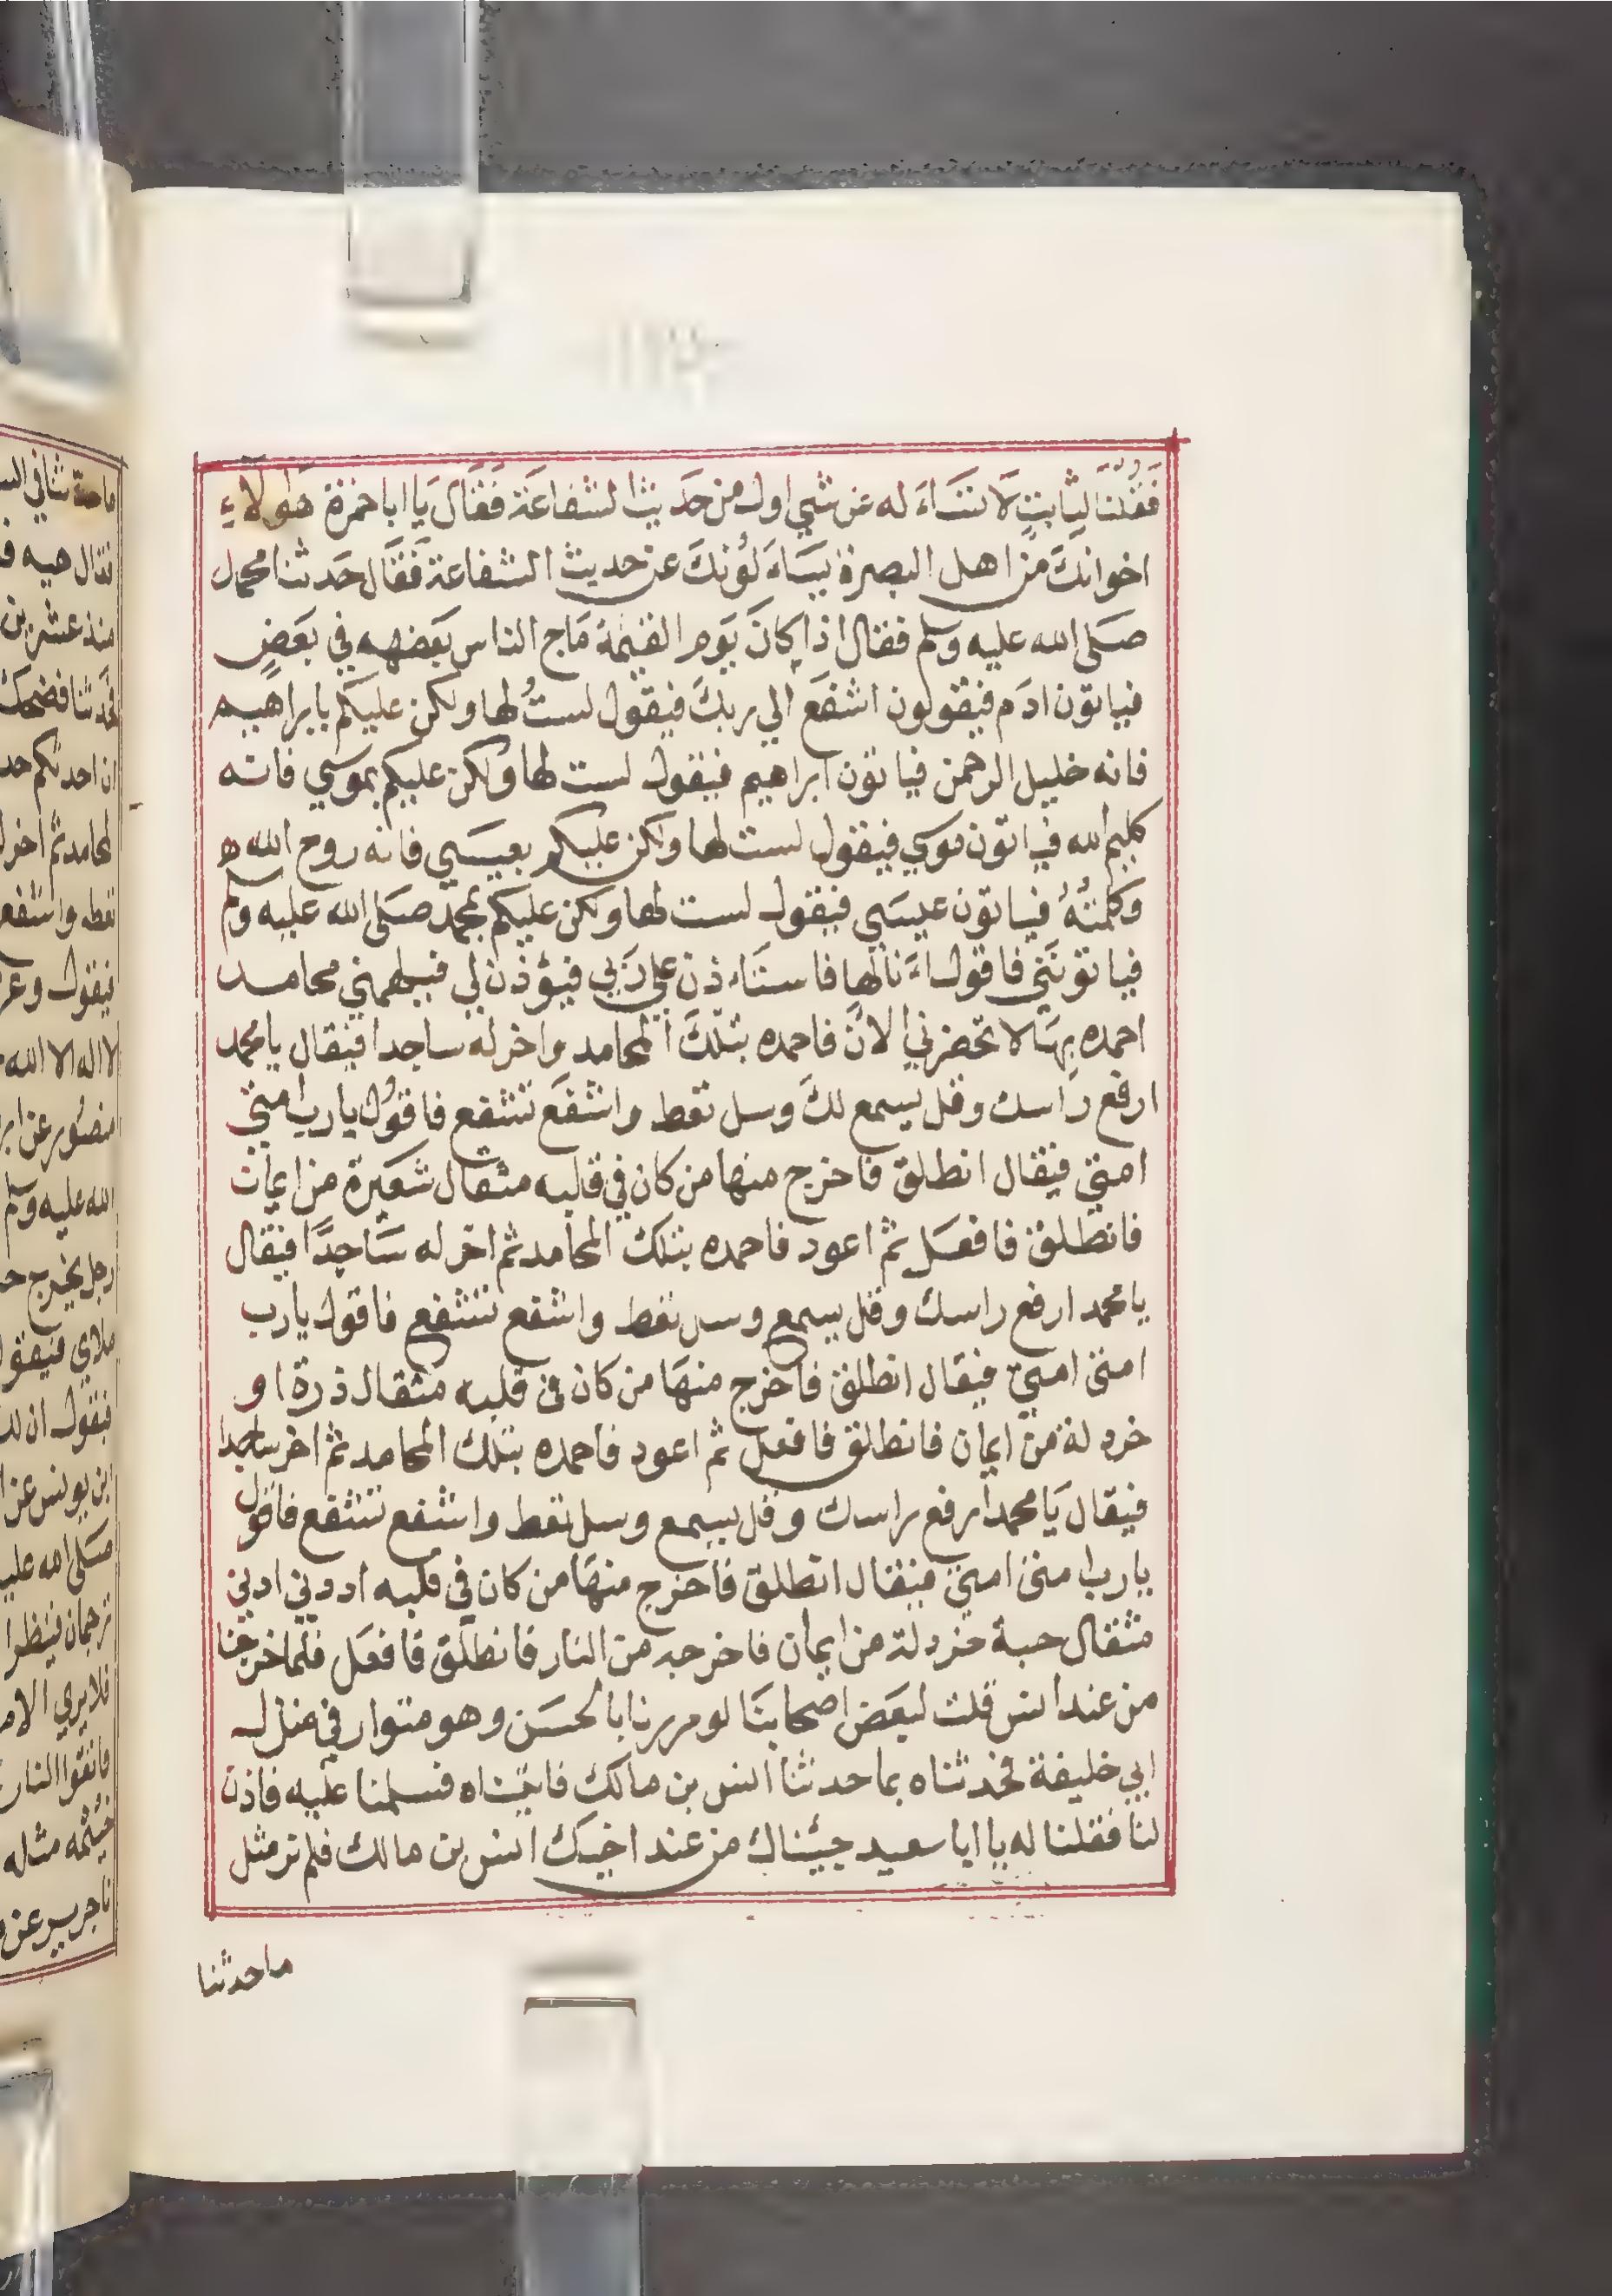 فَقُلنا لثابتٍ لَا تسَاءَله عن شي اول من حَديث الشفاعَة فَقَالَ يَا ابا حمزة هٰولآءِ
اخوانكَ من اهل البصرة يسَاءَلُونكَ عن حديث الشفاعة فَقَال حَدثنا محمد
صَلى الله عليه وسلم فقال اذا كانَ يَوم القيٰمة مَاج الناس بَعضهم في بَعضٍ
فياتون ادَم فيقولون اشفَع الي ربكَ فيقول لستُ لها ولكن عليكم بابراهيم
فانه خليل الرحمن فياتون ابراهيم فيقول لست لها ولكن عليكم بموسي فانه
كليم الله فياتون موسي فيقول لست لها ولكن عليكم بعيسَي فانه روح الله ه
وكلمتُهُ فياتون عيسَي فيقول لست لها ولكن عليكم بمحمد صَلى الله عليه وسلم
فياتونَني فاقول اَنا لها فاستَاءذن علي رَبي فيؤذن لي فيلهمني محامد
احمده بِهَا لا تحضرني الانَ فاحمده بتلكَ المحامد واخر له ساجدا فيقال يا محمد
ارفع رَاسك وقل يسمع لكَ وسل تعط واشفَع تشفع فاقوُل يا رب امتي
امتي فيقال انطلق فاخرج منها من كان في قلبه مثقال شعَيرة من ايمان
فانطلق فافعَل ثم اعود فاحمده بتلك المحامد ثم اخر له سَاجدًا فيقال
يا محمد ارفع راسك وقل يسمع وسل تعط واشفع تشفع فاقول يا رب
امتي امتي فيقال انطلق فاخرج منهَا من كان في قلبه مثقال ذرة او
خردلة من ايمان فانطلق فافعل ثم اعود فاحمده بتلك المحامد ثم اخر ساجدا
فيقال يَا محمد ارفع راسك وقل يسمع وسل تعط واشفع تشفع فاقول
يا رب امتي امتي فيقال انطلق فاخرج منهَا من كان في قلبه ادوني ادني
مثقال حبة خردلة من ايمان فاخرجه من النار فانطلق فافعَل فلما خرجنا
من عند انس قلت لبعَض اصحابنَا لو مررنا بالحسَن وهو متوار في منزل
ابي خليفة فحدثناه بما حدثنا انس بن مالك فاتيناه فسلمنا عليه فاذن
لنا فقلنا له يا ابا سعيد جئناك من عند اخيك انس بن مالك فلم نر مثل
ماحدثنا